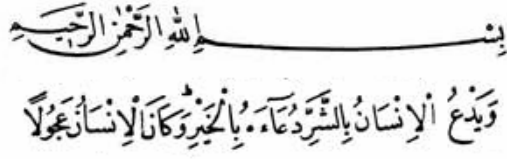 بِسْمِ اللهِ الرَّحْمٰنِ الرَّحِيمِ
وَيَدْعُ الْاِنْسَانُ بِالشَّرِّ دُعَآءَهُ بِالْخَيْرِ وَكَانَ الْاِنْسَانُ عَجُولًا